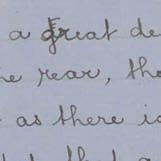 a great de
rear, the
as there is